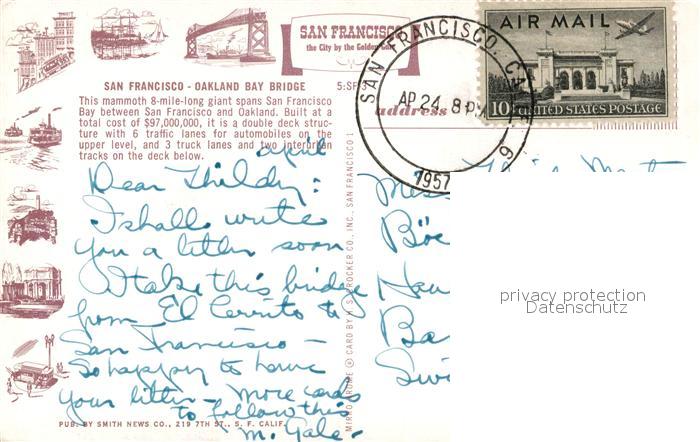 SAN FRANCISCO
the City by the Golden Gate
SAN FRANCISCO - OAKLAND BAY BRIDGE
5:SF
This mammoth 8-mile-long giant spans San Francisco
Bay between San Francisco and Oakland. Built at a
total cost of $97,000,000, it is a double deck struc-
ture with 6 traffic lanes for automobiles on the
upper level, and 3 truck lanes and two interurban
tracks on the deck below.
April
Dear Thildy:
I shall write
you a letter soon
I take this bridge
from El Cerrito to
San Francisco —
So happy to have
your letter - More cards
to follow this
M. Gale -
PUB. BY SMITH NEWS CO., 219 7TH ST., S. F. CALIF.
CARD BY H. S. CROCKER CO., INC., SAN FRANCISCO 1
SAN FRANCISCO, CALIF.
AP 24. 8 PM
1957
AIR MAIL
10¢ UNITED STATES POSTAGE
address
Miss
Böc
New
Ba
Swi
privacy protection
Datenschutz